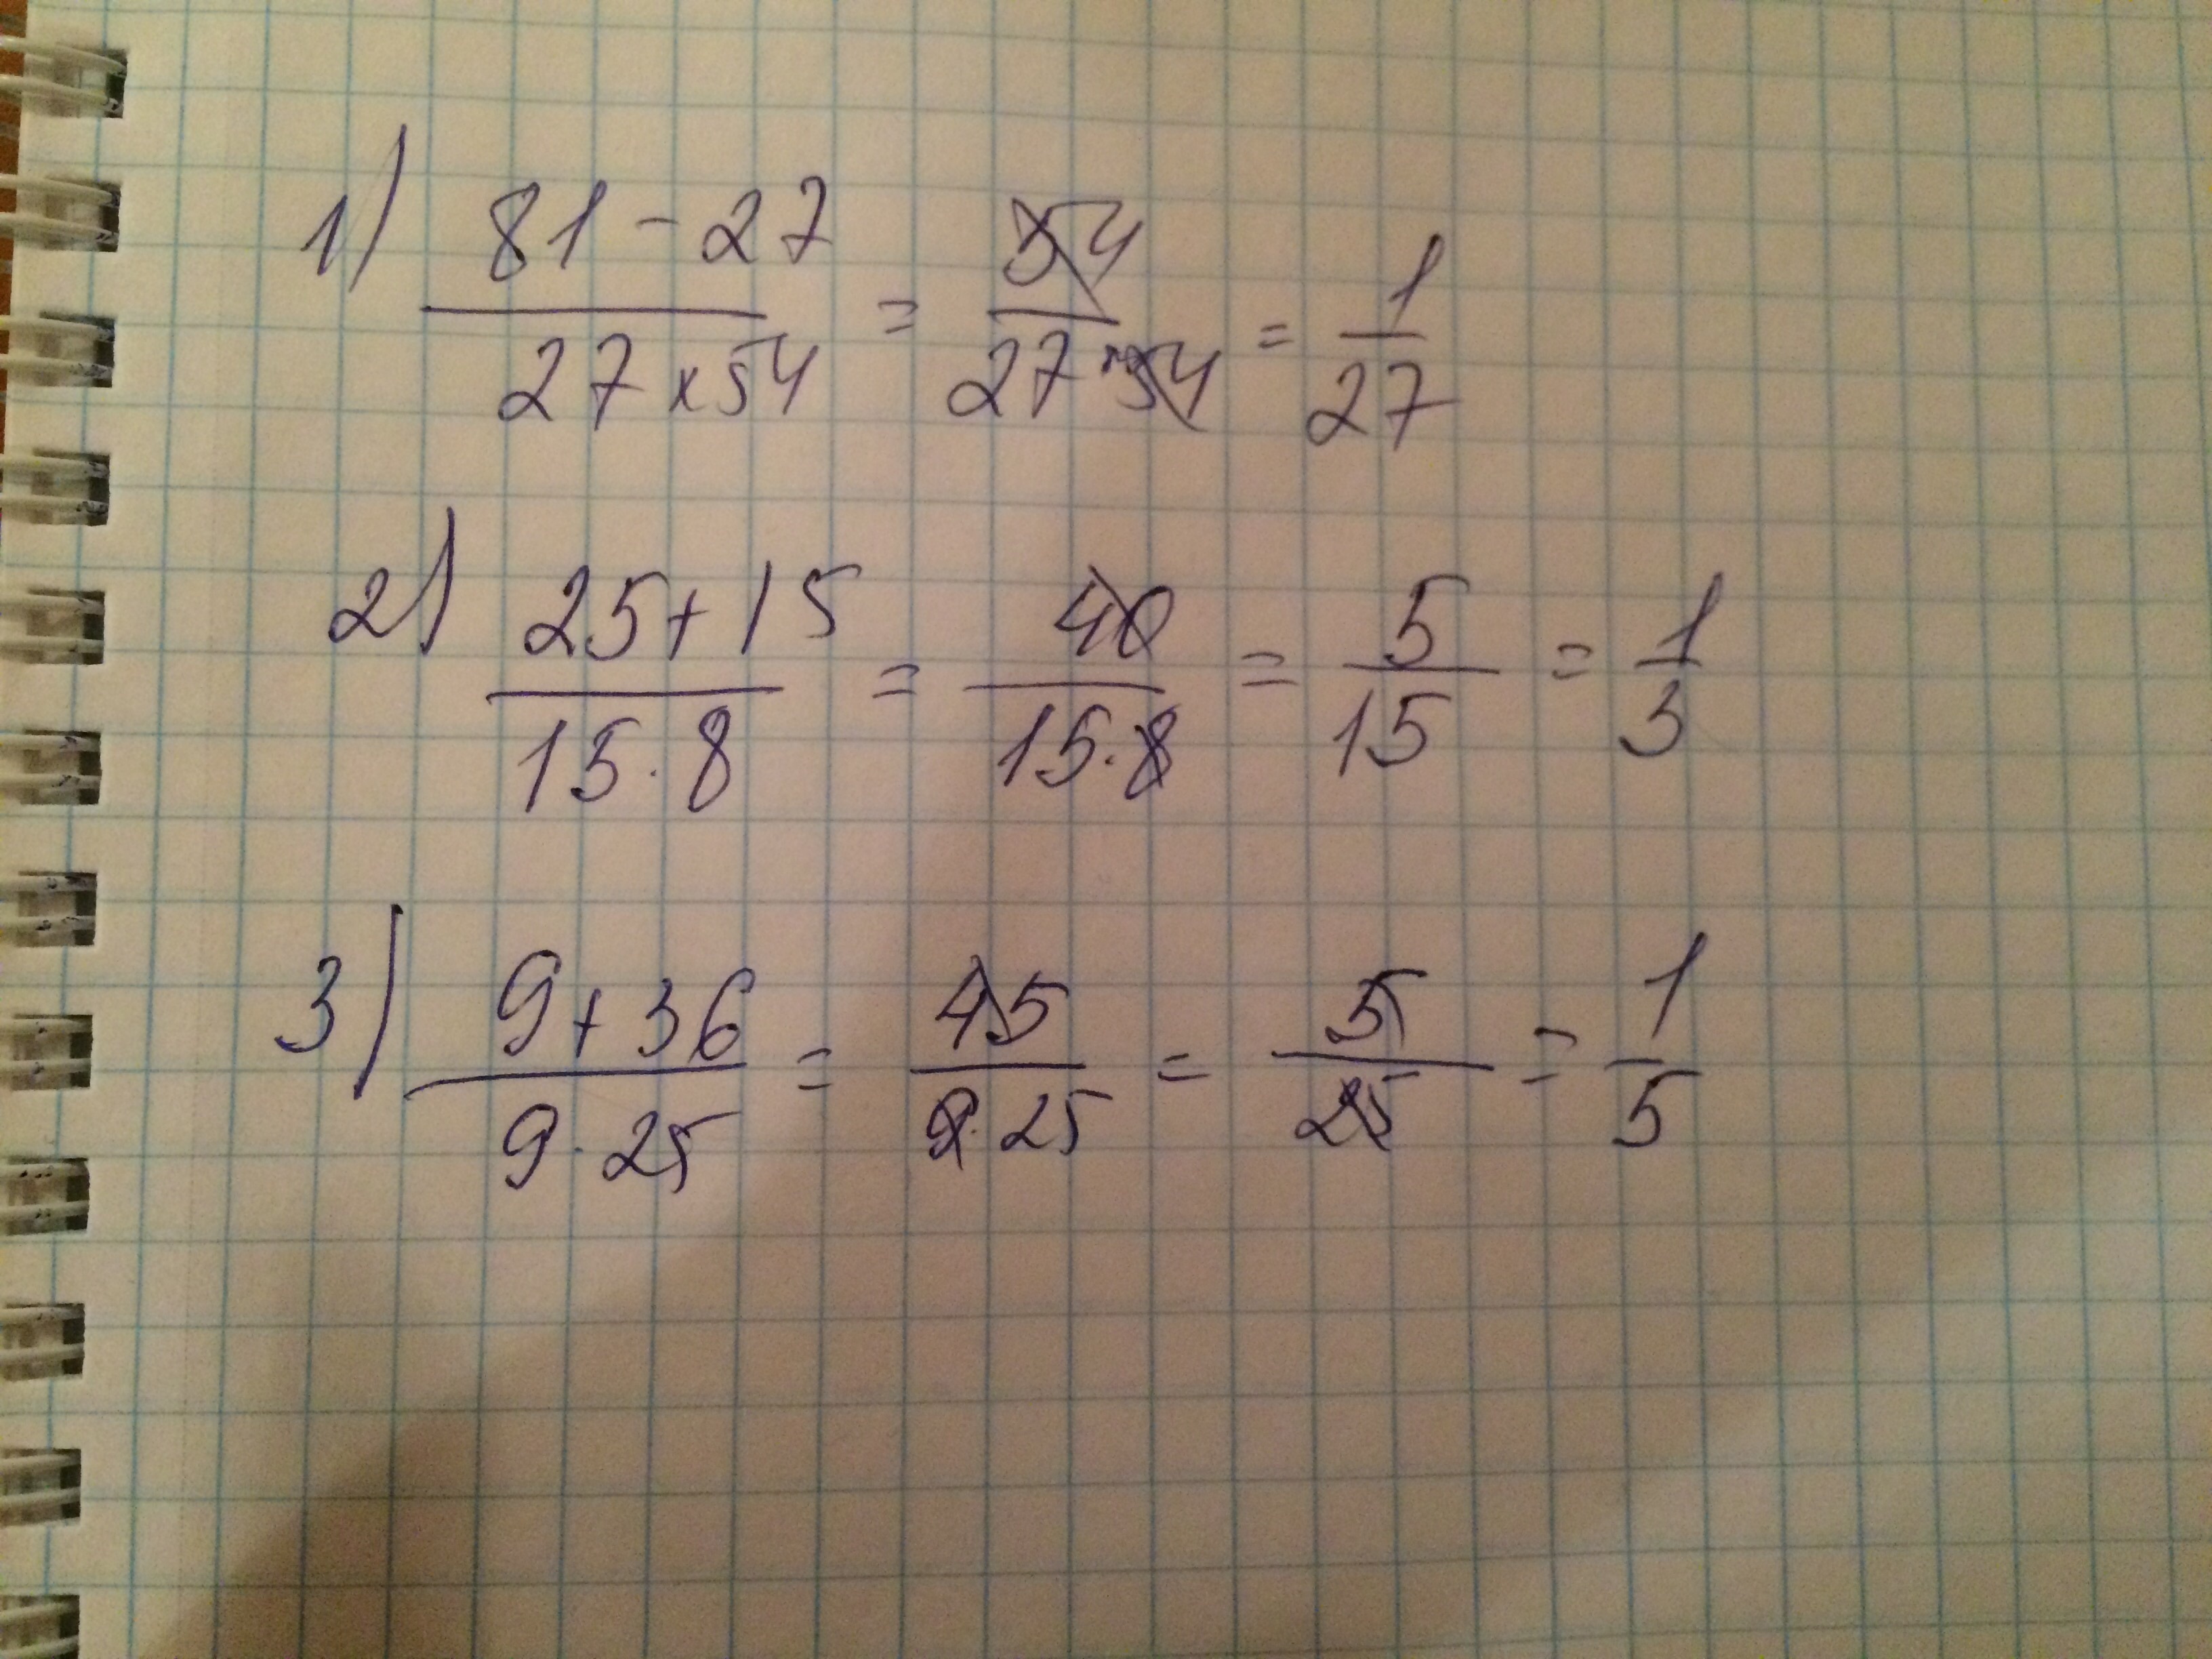 1) (81-27)/(27×54) = 54/(27×54) = 1/27
2) (25+15)/(15·8) = 40/(15·8) = 5/15 = 1/3
3) (9+36)/(9·25) = 45/(9·25) = 5/25 = 1/5